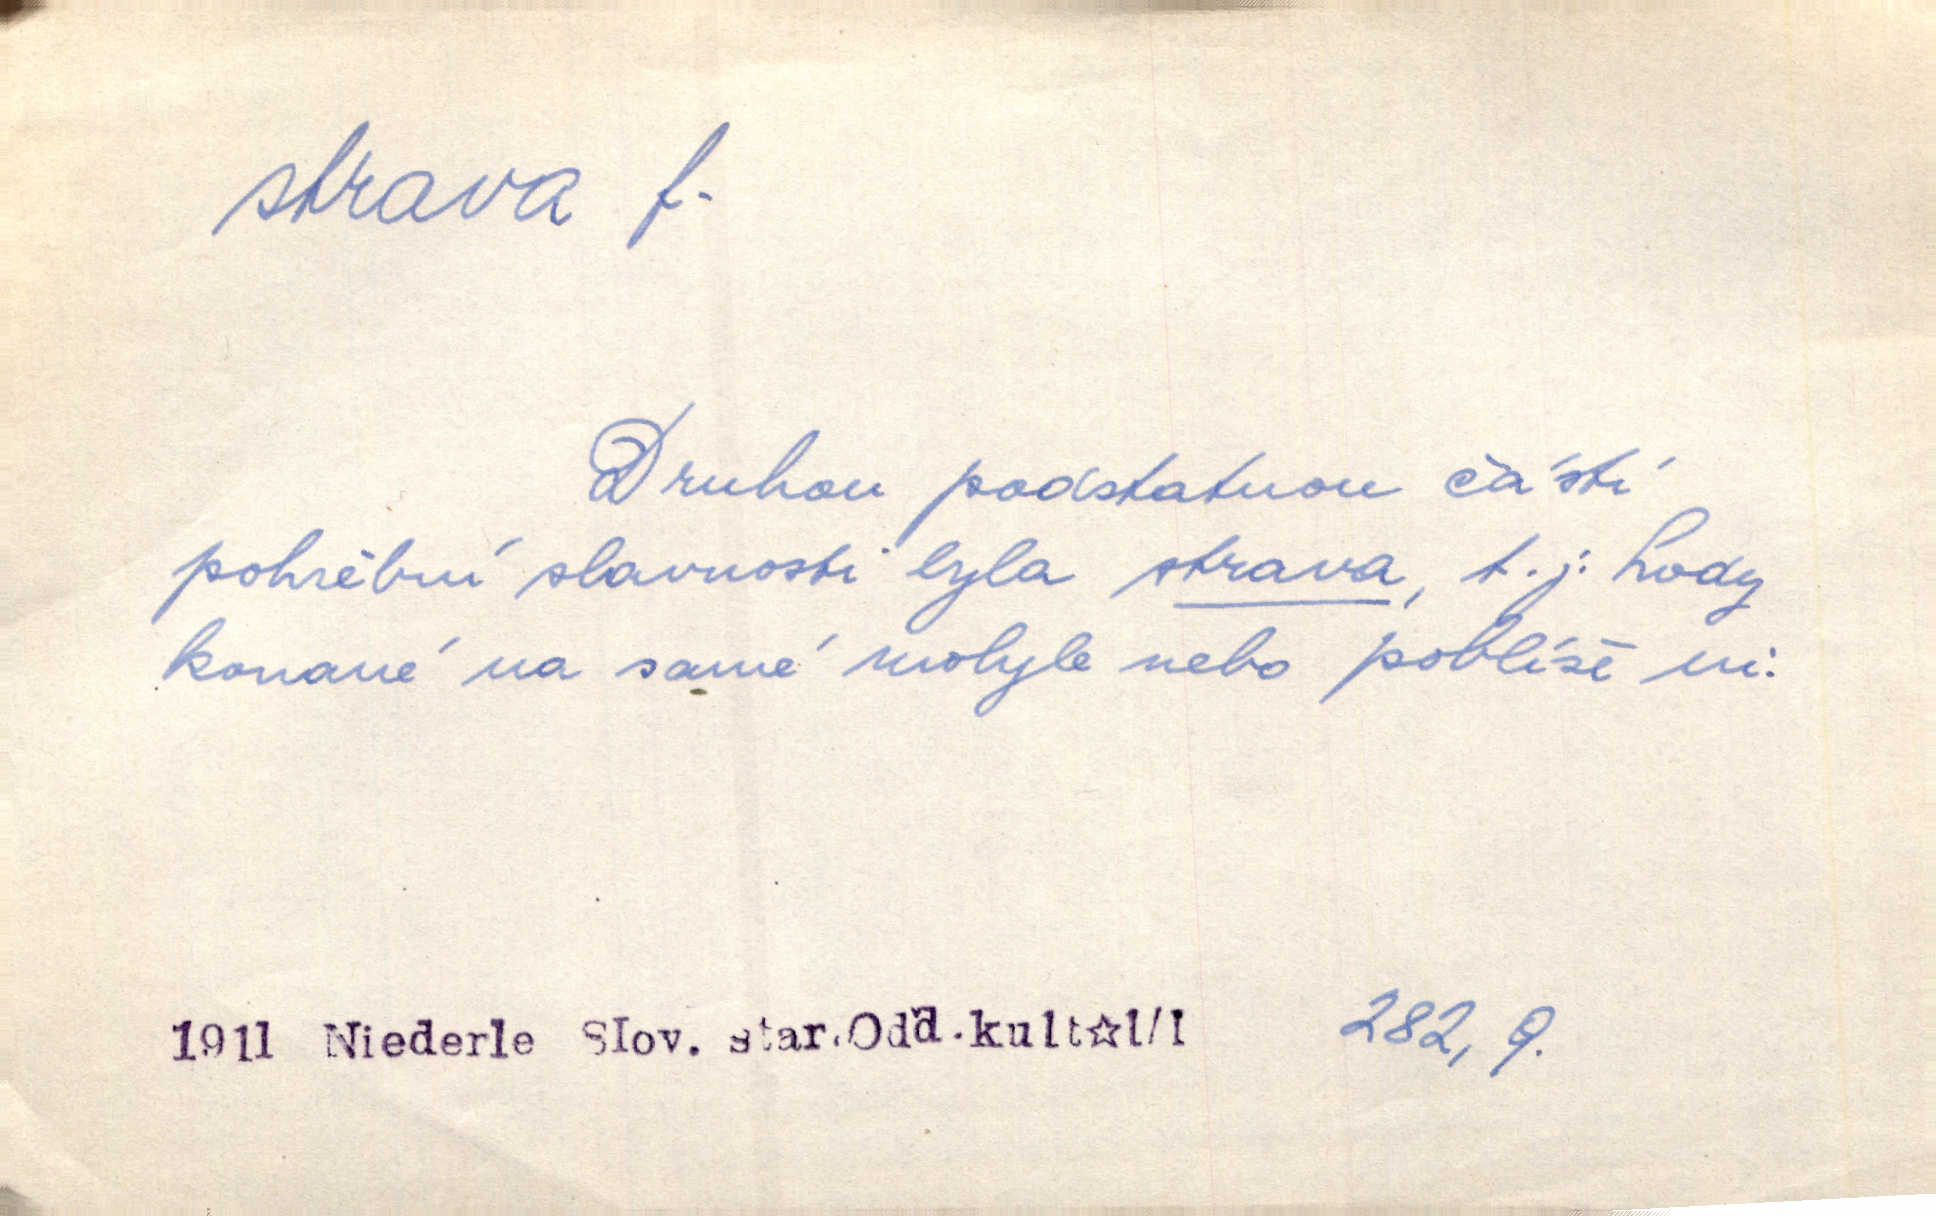 strava f.
Druhou podstatnou částí
pohřební slavnosti byla strava, t. j. hody
konané na samé mohyle nebo poblíže ní.
1911 Niederle Slov. star. Odd. kult☆1/I 282, 9.